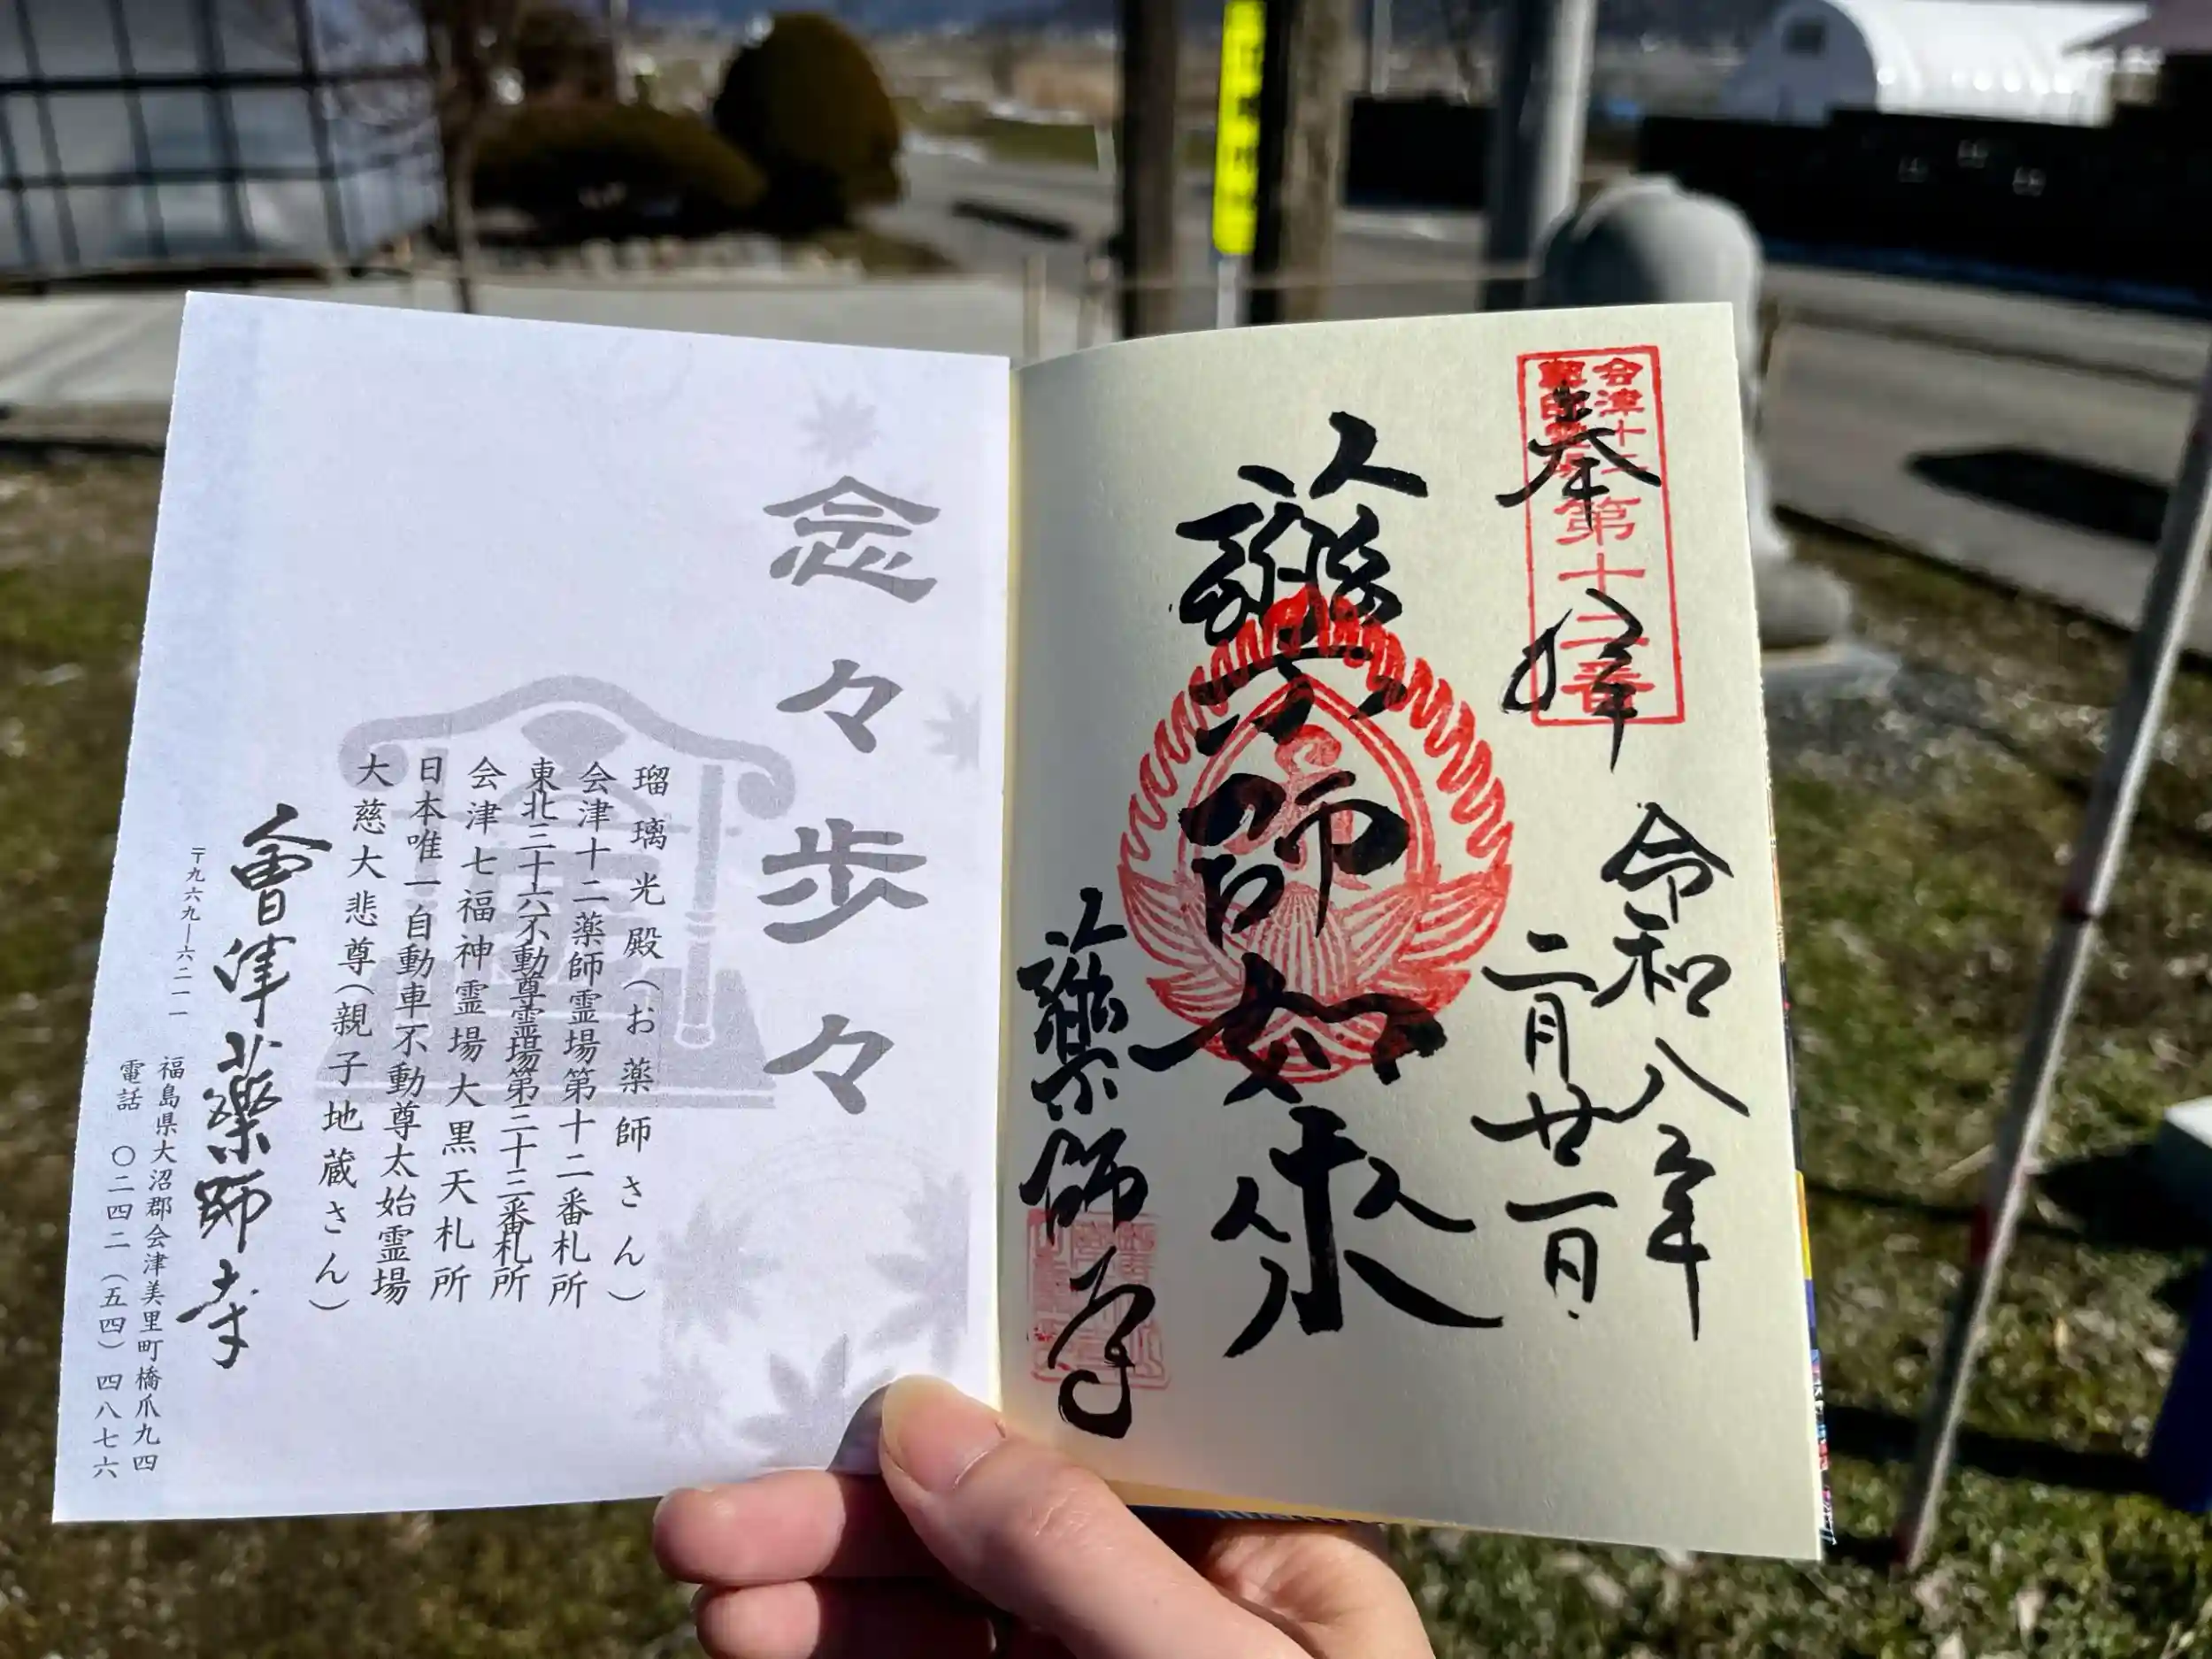 会津十二
薬師霊場
第十二番
奉拝
令和八年
二月廿一日
薬師如来
薬師寺
念々歩々
瑠璃光殿（お薬師さん）
会津十二薬師霊場第十二番札所
東北三十六不動尊霊場第三十三番札所
会津七福神霊場大黒天札所
日本唯一自動車不動尊太始霊場
大慈大悲尊（親子地蔵さん）
會津薬師寺
〒九六九―六二一一
福島県大沼郡会津美里町橋爪九四
電話 〇二四二（五四）四八七六